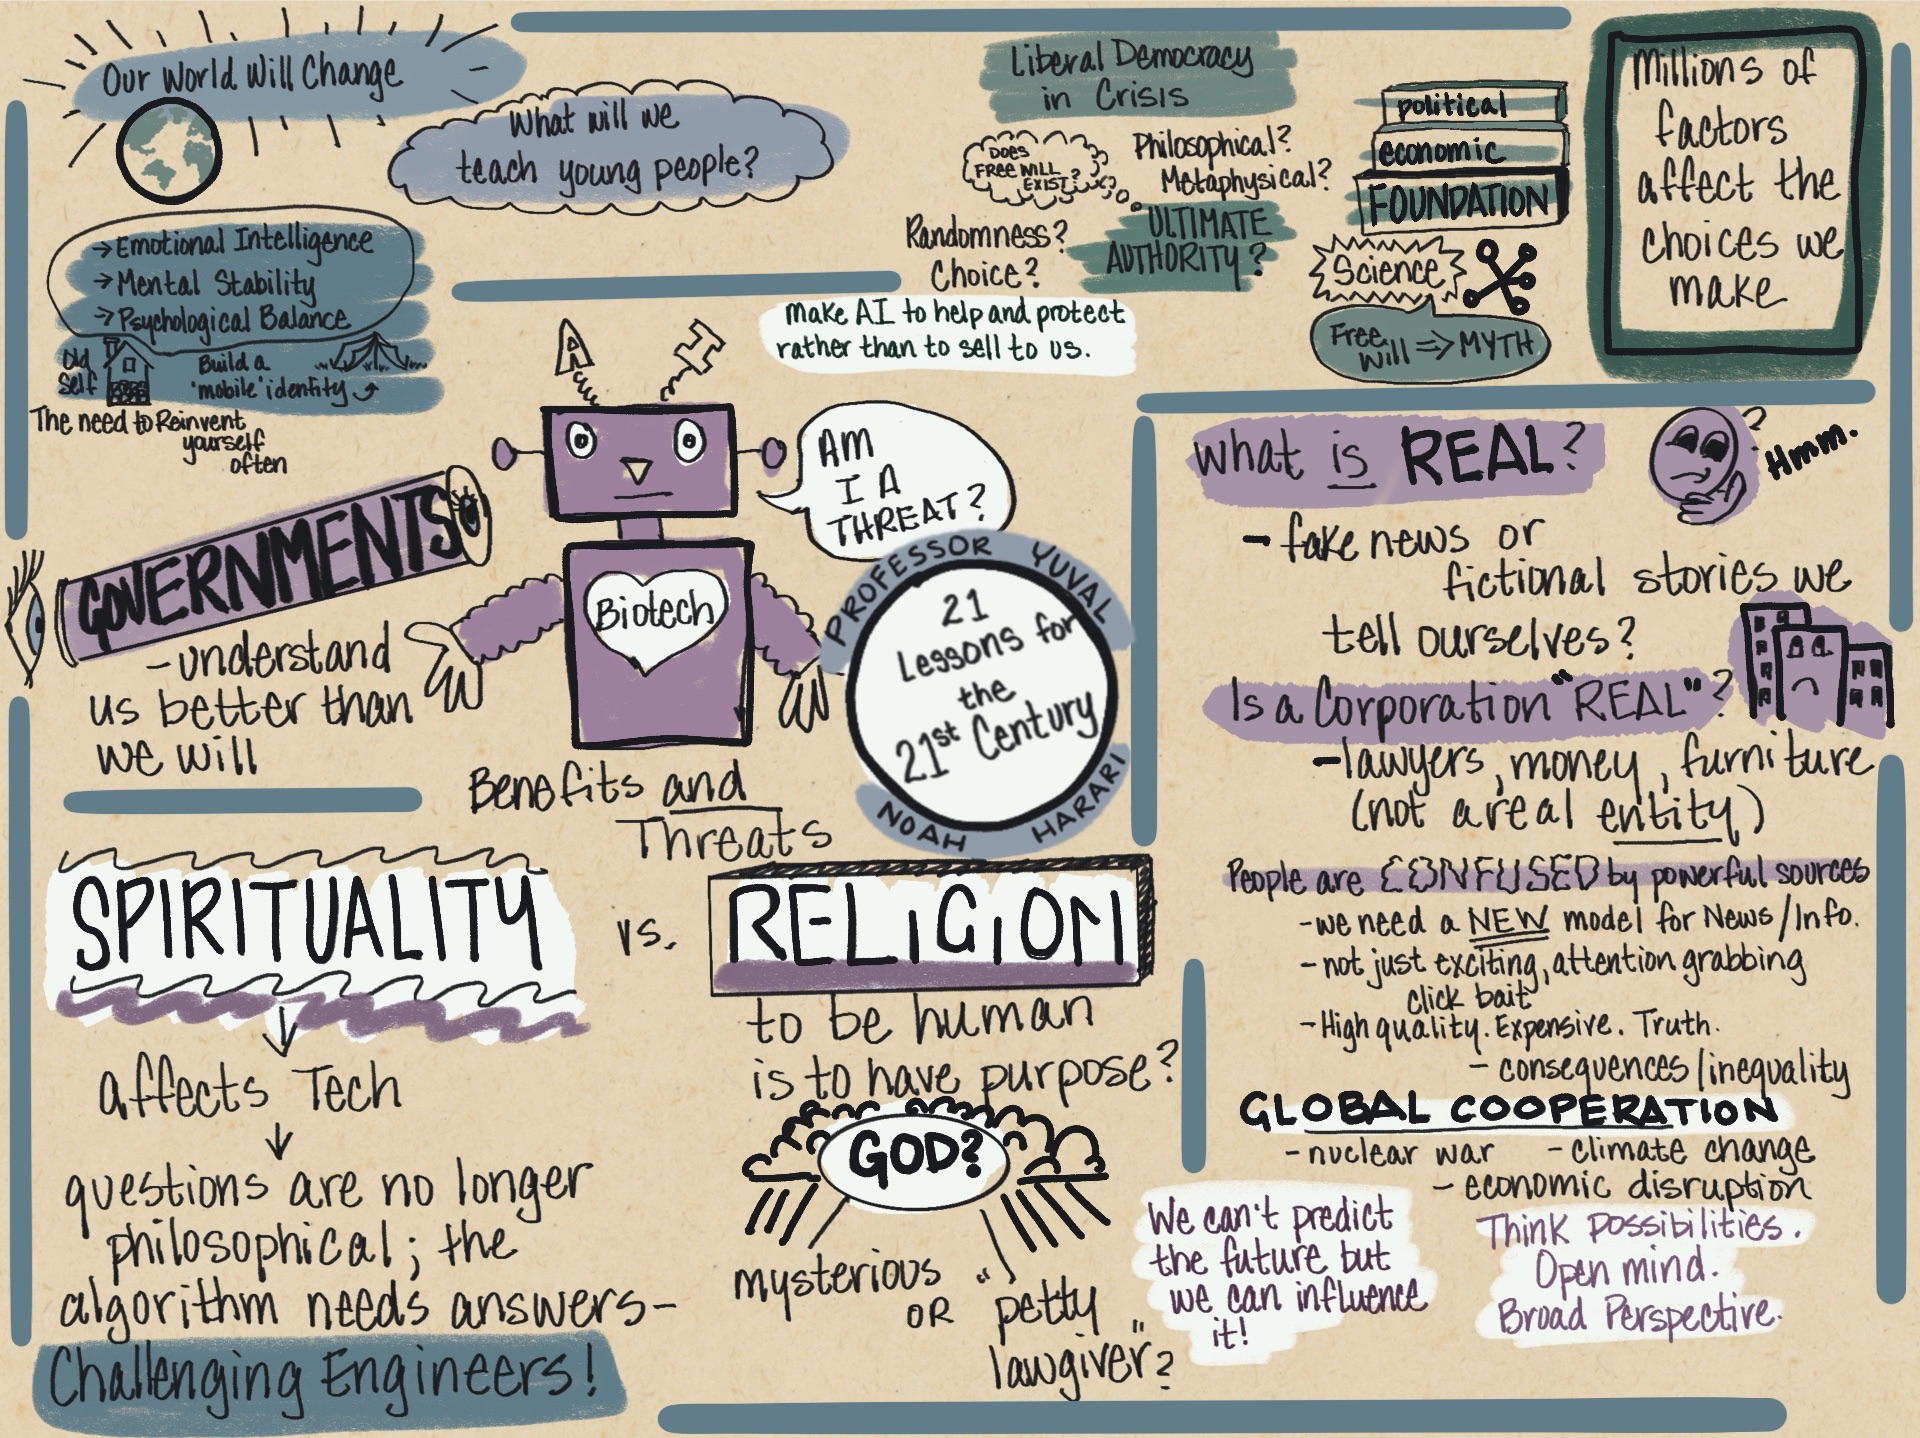 Our World Will Change
What will we
teach young people?
→Emotional Intelligence
→Mental Stability
→Psychological Balance
Old
Self
Build a
'mobile' identity
The need to Reinvent
yourself
often
Liberal Democracy
in Crisis
DOES
FREE WILL
EXIST?
Philosophical?
Metaphysical?
Randomness?
Choice?
ULTIMATE
AUTHORITY?
political
economic
FOUNDATION
Science
Free
Will ⇒ MYTH
Millions of
factors
affect the
choices we
make
make AI to help and protect
rather than to sell to us.
A I
AM
I A
THREAT?
Biotech
Benefits and
Threats
GOVERNMENTS
-understand
us better than
we will
PROFESSOR YUVAL
21
Lessons for
the
21st Century
NOAH HARARI
What is REAL?
?
Hmm.
- fake news or
fictional stories we
tell ourselves?
Is a Corporation "REAL"?
-lawyers, money, furniture
(not a real entity)
People are CONFUSED by powerful sources
-we need a NEW model for News/Info.
- not just exciting, attention grabbing
click bait
- High quality. Expensive. Truth.
- consequences/inequality
GLOBAL COOPERATION
- nuclear war - climate change
- economic disruption
Think Possibilities.
Open mind.
Broad Perspective.
We can't predict
the future but
we can influence
it!
SPIRITUALITY
vs.
RELIGION
affects Tech
questions are no longer
philosophical; the
algorithm needs answers-
Challenging Engineers!
to be human
is to have purpose?
GOD?
mysterious
OR
"petty
lawgiver"?